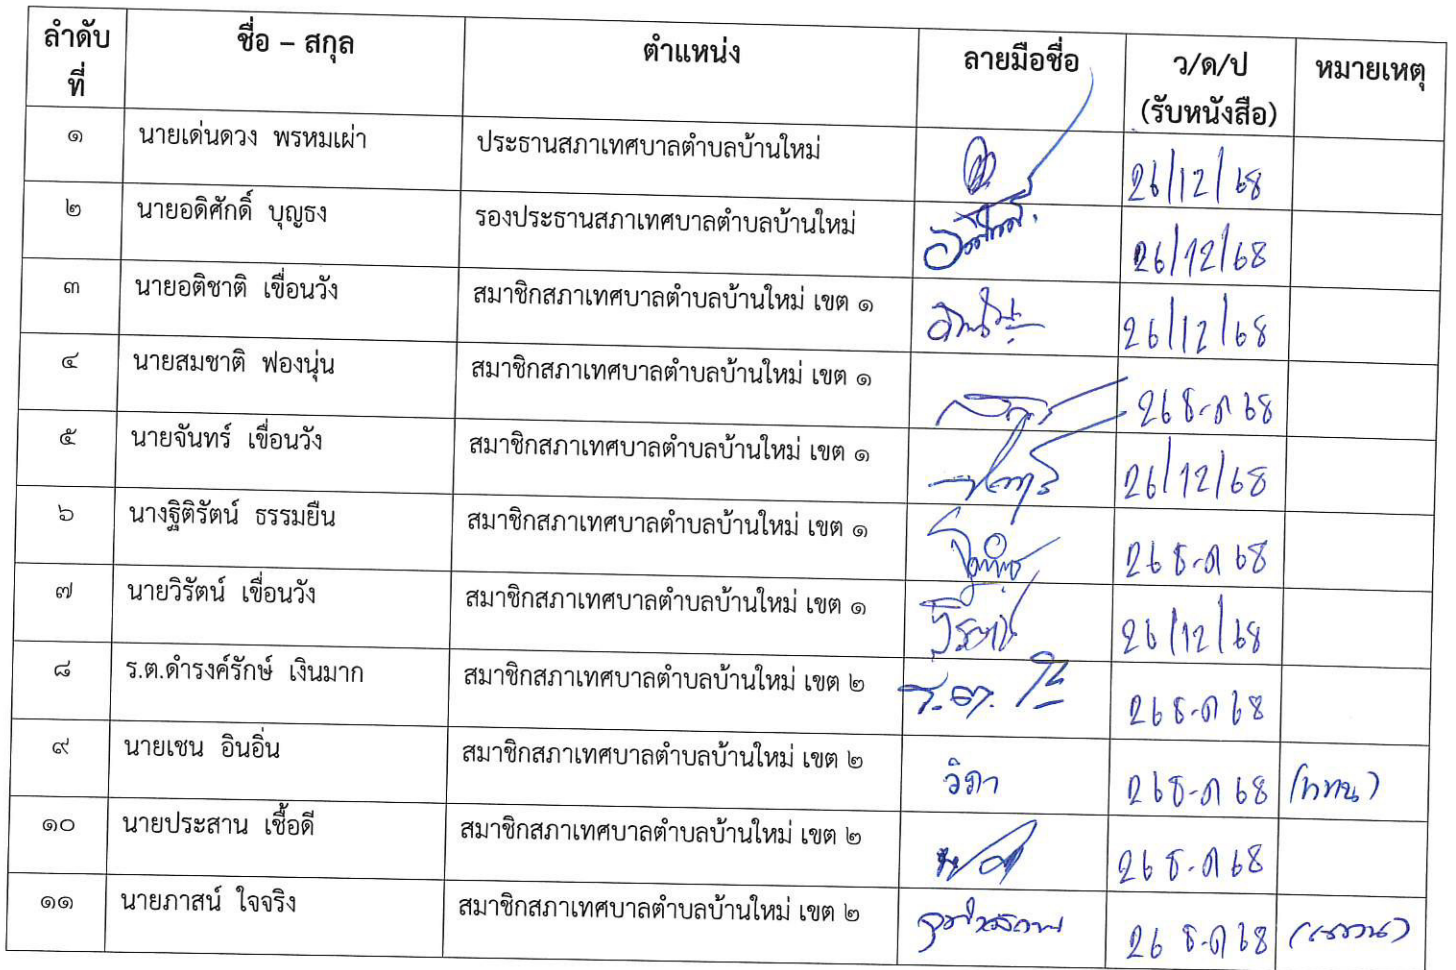 ลำดับที่ ชื่อ – สกุล ตำแหน่ง ลายมือชื่อ ว/ด/ป (รับหนังสือ) หมายเหตุ
๑ นายเด่นดวง พรหมเผ่า ประธานสภาเทศบาลตำบลบ้านใหม่ 26/12/68
๒ นายอดิศักดิ์ บุญธง รองประธานสภาเทศบาลตำบลบ้านใหม่ 26/12/68
๓ นายอติชาติ เขื่อนวัง สมาชิกสภาเทศบาลตำบลบ้านใหม่ เขต ๑ 26/12/68
๔ นายสมชาติ ฟองนุ่น สมาชิกสภาเทศบาลตำบลบ้านใหม่ เขต ๑ 26 ธ.ค 68
๕ นายจันทร์ เขื่อนวัง สมาชิกสภาเทศบาลตำบลบ้านใหม่ เขต ๑ 26/12/68
๖ นางฐิติรัตน์ ธรรมยืน สมาชิกสภาเทศบาลตำบลบ้านใหม่ เขต ๑ 26 ธ.ค 68
๗ นายวิรัตน์ เขื่อนวัง สมาชิกสภาเทศบาลตำบลบ้านใหม่ เขต ๑ วิรัตน์ 26/12/68
๘ ร.ต.ดำรงค์รักษ์ เงินมาก สมาชิกสภาเทศบาลตำบลบ้านใหม่ เขต ๒ ร.ต. 26 ธ.ค 68
๙ นายเชน อินอิ่น สมาชิกสภาเทศบาลตำบลบ้านใหม่ เขต ๒ วิภา 26 ธ.ค 68 (แทน)
๑๐ นายประสาน เชื้อดี สมาชิกสภาเทศบาลตำบลบ้านใหม่ เขต ๒ 26 ธ.ค 68
๑๑ นายภาสน์ ใจจริง สมาชิกสภาเทศบาลตำบลบ้านใหม่ เขต ๒ 26 ธ.ค 68